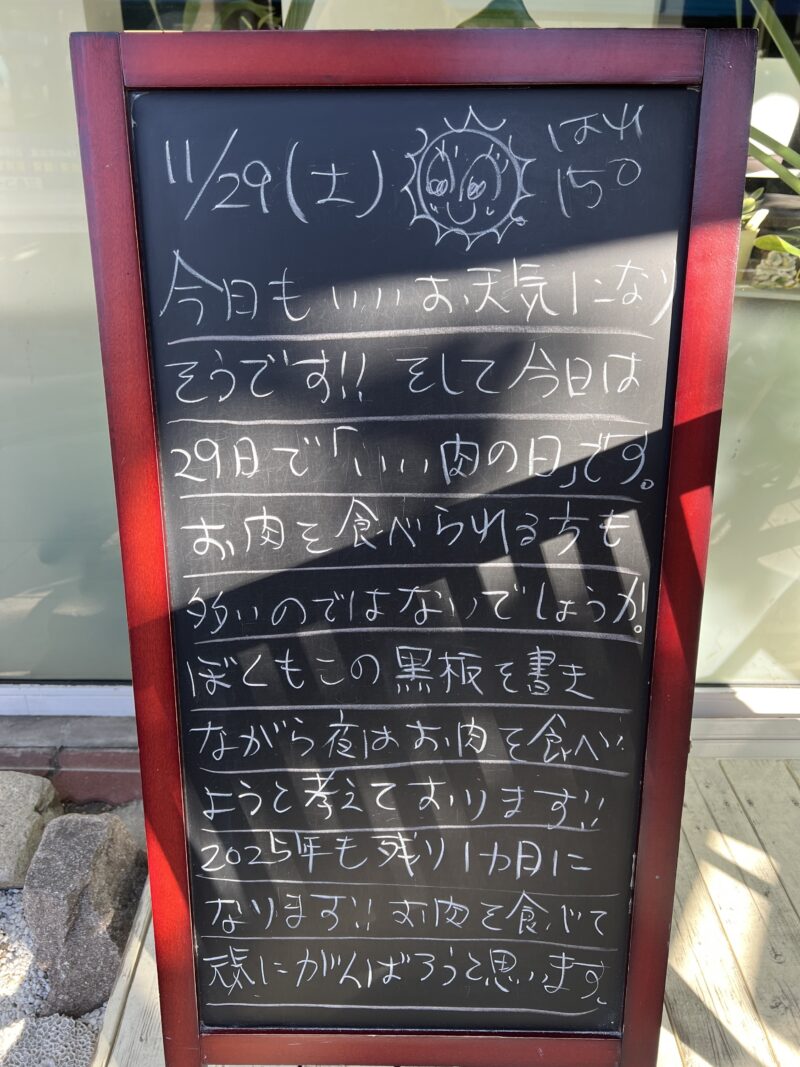 11/29(土)
はれ
15°
今日もいいお天気になり
そうです!! そして今日は
29日で「いい肉の日」です。
お肉を食べられる方も
多いのではないでしょうか。
ぼくもこの黒板を書き
ながら夜はお肉を食べ
ようと考えております!!
2025年も残り1カ月に
なります!! お肉を食べて
元気にがんばろうと思います。